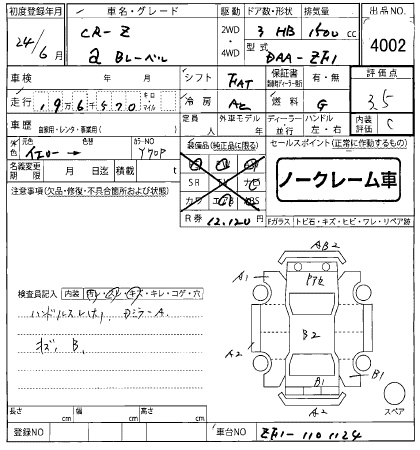 初度登録年月 車名・グレード 駆動 ドア数・形状 排気量 出品NO.
24/6月 CR-Z 2WD・4WD 3 HB 1500 cc 4002
α Bレーベル 型式 DAA-ZF1
車検 年 月 シフト FAT 保証書 有・無 評価点
走行 19万6千570 キロ マイル 冷房 AC 燃料 G 3.5
車歴 自家用・レンタ・事業用( ) 定員 人 外車モデル 年 ディーラー 並行 ハンドル 左・右 内装評価 C
外色 元色 色替 カラーNO 装備品(純正品に限る) セールスポイント(正常に作動するもの)
イエロー → Y70P
名義変更期限 月 日迄 積載 t SR ナビ
ノークレーム車
注意事項(欠品・修復・不具合箇所および状態) カワ
R券 12,120円 Fガラス トビ石・キズ・ヒビ・ワレ・リペア跡
AB2
A1
検査員記入 内装 汚レ・スレ・キズ・キレ・コゲ・穴
ハンドルスレ
ドミラーA.
B2
B.
A2 B1 B1
A2 スペア
長さ cm 幅 cm 高さ cm
登録NO 車台NO ZF1-1101124